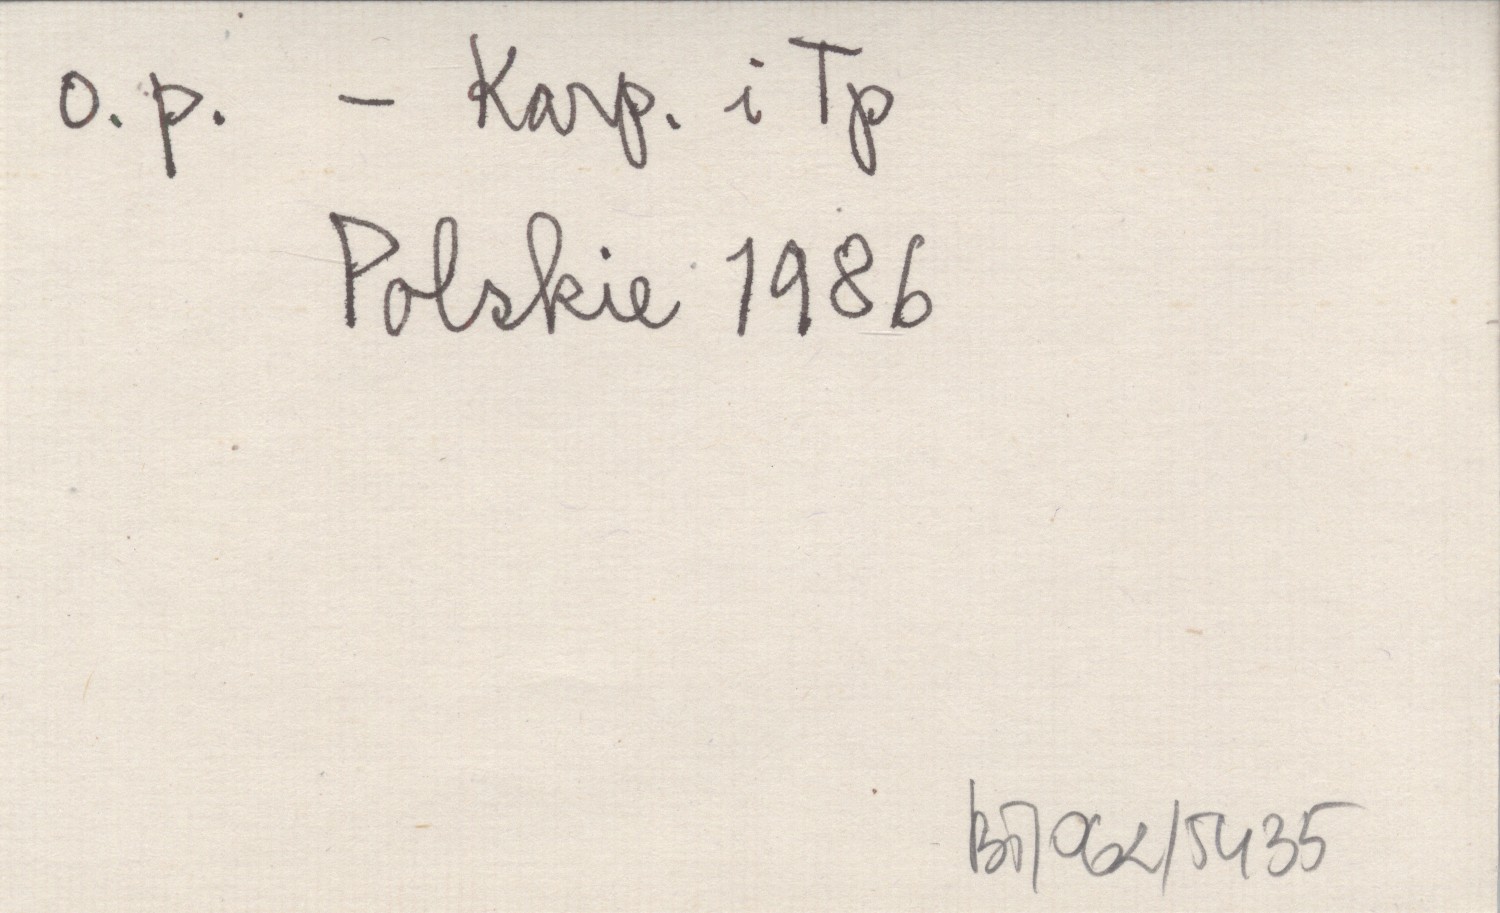 o. p. - Karp. i Tp
Polskie 1986
/5435